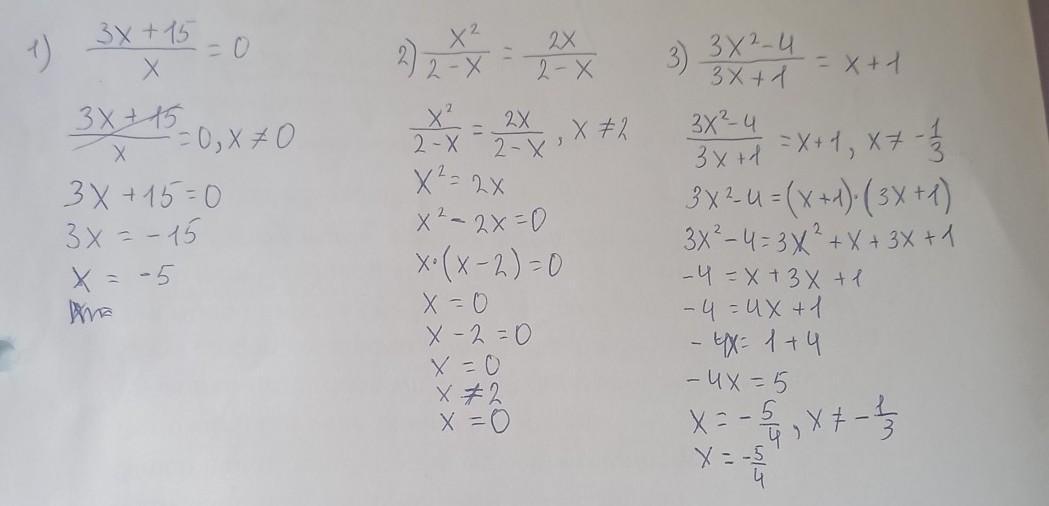 1) (3x+15)/x = 0
(3x+15)/x = 0, x ≠ 0
3x + 15 = 0
3x = -15
x = -5
2) x²/(2-x) = 2x/(2-x)
x²/(2-x) = 2x/(2-x), x ≠ 2
x² = 2x
x² - 2x = 0
x·(x-2) = 0
x = 0
x - 2 = 0
x = 0
x ≠ 2
x = 0
3) (3x²-4)/(3x+1) = x+1
(3x²-4)/(3x+1) = x+1, x ≠ -1/3
3x²-4 = (x+1)·(3x+1)
3x²-4 = 3x²+x+3x+1
-4 = x+3x+1
-4 = 4x+1
-4x = 1+4
-4x = 5
x = -5/4, x ≠ -1/3
x = -5/4